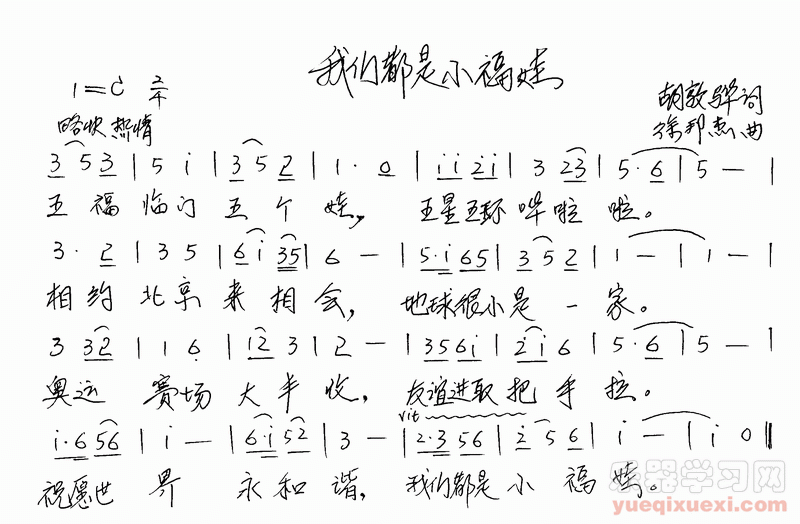 我们都是小福娃
1=C 2/4
胡敦骅词
略快 热情
徐邦杰曲
3 5 3 | 5 i | 3 5 2 | 1 · 0 | i i 2 i | 3 2 3 | 5 · 6 | 5 — |
五福临门五个娃，五星五环哗啦啦。
3 · 2 | 3 5 | 6 i 3 5 | 6 — | 5 · i 6 5 | 3 5 2 | 1 — | 1 — |
相约北京来相会，地球很小是一家。
3 3 2 | 1 1 6 | 1 2 3 | 2 — | 3 5 6 i | 2 i 6 | 5 · 6 | 5 — |
奥运赛场大丰收，友谊进取把手拉。
vit
i · 6 5 6 | i — | 6 · i 5 2 | 3 — | 2 · 3 5 6 | 2 5 6 | i — | i 0 ‖
祝愿世界永和谐，我们都是小福娃。
乐器学习网
yueqixuexi.com